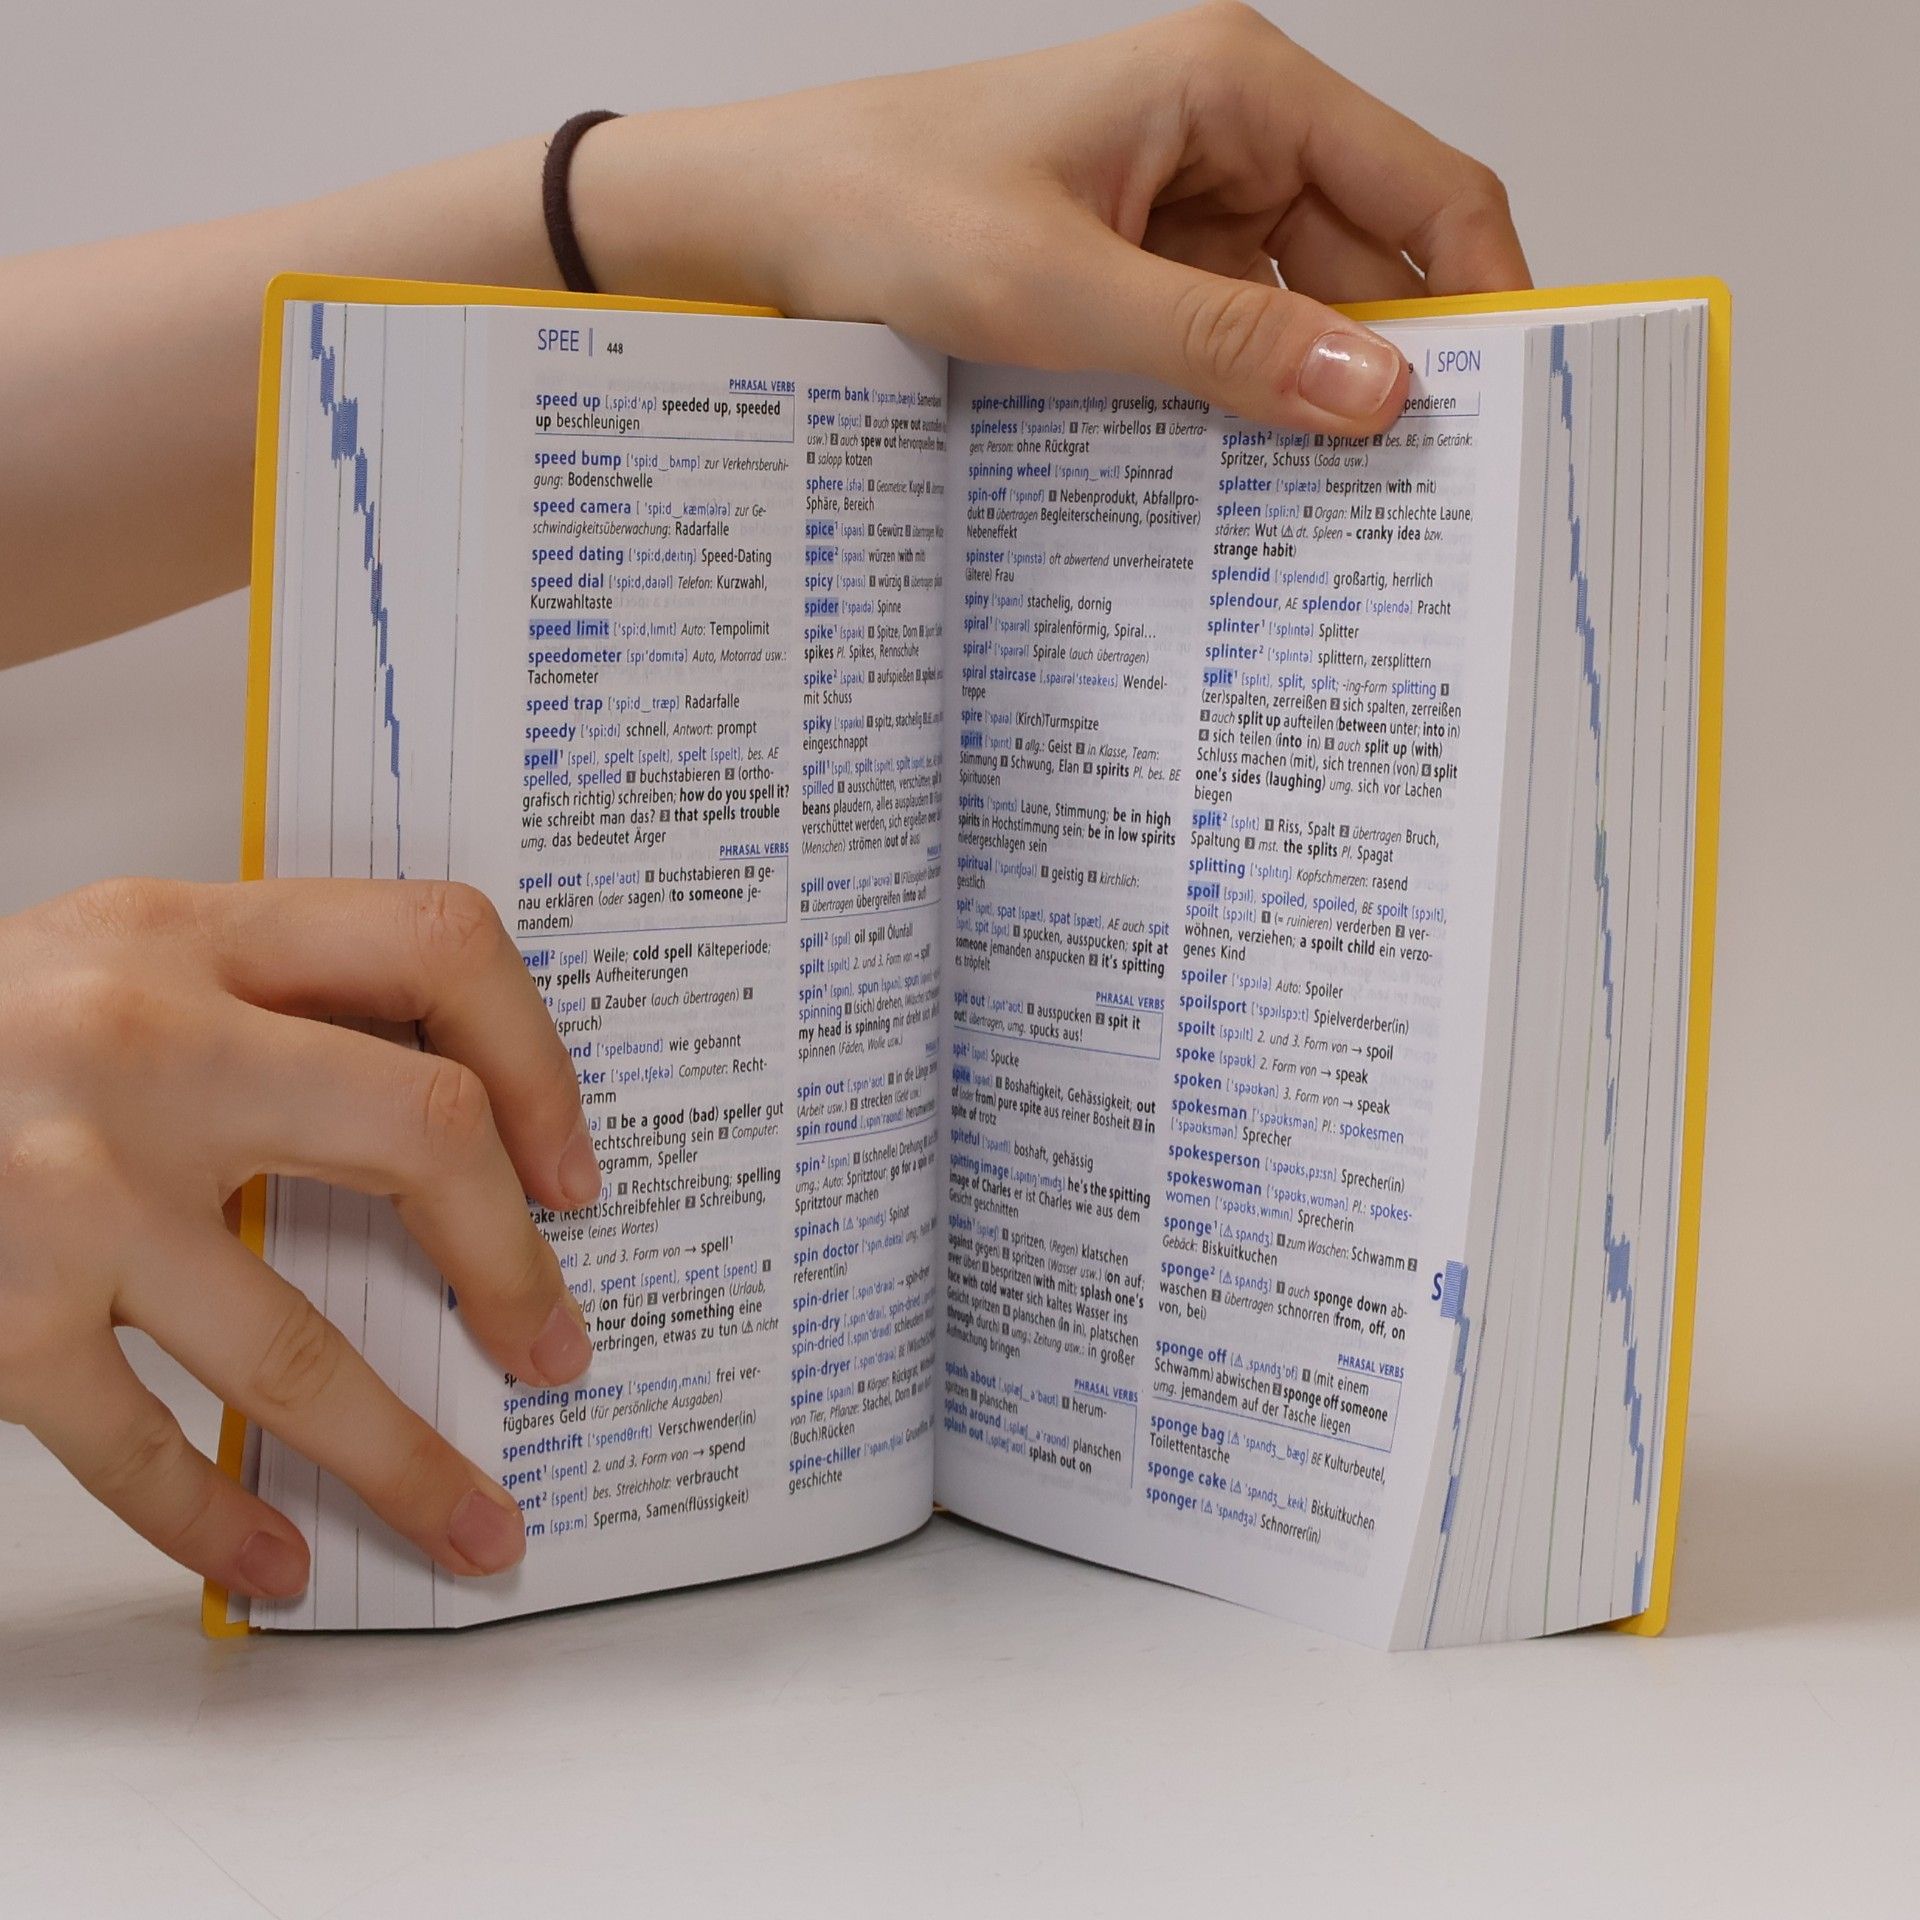 SPEE | 448
PHRASAL VERBS
speed up [ˌspiːdˈʌp] speeded up, speeded
up beschleunigen
speed bump [ˈspiːd‿bʌmp] zur Verkehrsberuhi-
gung: Bodenschwelle
speed camera [ˈspiːd‿kæm(ə)rə] zur Ge-
schwindigkeitsüberwachung: Radarfalle
speed dating [ˈspiːdˌdeɪtɪŋ] Speed-Dating
speed dial [ˈspiːdˌdaɪəl] Telefon: Kurzwahl,
Kurzwahltaste
speed limit [ˈspiːdˌlɪmɪt] Auto: Tempolimit
speedometer [spɪˈdɒmɪtə] Auto, Motorrad usw.:
Tachometer
speed trap [ˈspiːd‿træp] Radarfalle
speedy [ˈspiːdɪ] schnell, Antwort: prompt
spell¹ [spel], spelt [spelt], spelt [spelt], bes. AE
spelled, spelled 1 buchstabieren 2 (ortho-
grafisch richtig) schreiben; how do you spell it?
wie schreibt man das? 3 that spells trouble
umg. das bedeutet Ärger
PHRASAL VERBS
spell out [ˌspelˈaʊt] 1 buchstabieren 2 ge-
nau erklären (oder sagen) (to someone je-
mandem)
pell² [spel] Weile; cold spell Kälteperiode;
ny spells Aufheiterungen
³ [spel] 1 Zauber (auch übertragen) 2
(spruch)
nd [ˈspelbaʊnd] wie gebannt
cker [ˈspelˌtʃekə] Computer: Recht-
ramm
lə] 1 be a good (bad) speller gut
echtschreibung sein 2 Computer:
ogramm, Speller
ŋ] 1 Rechtschreibung; spelling
take (Recht)Schreibfehler 2 Schreibung,
bweise (eines Wortes)
elt] 2. und 3. Form von → spell¹
end], spent [spent], spent [spent] 1
ld) (on für) 2 verbringen (Urlaub,
n hour doing something eine
verbringen, etwas zu tun (⚠ nicht
sp
spending money [ˈspendɪŋˌmʌnɪ] frei ver-
fügbares Geld (für persönliche Ausgaben)
spendthrift [ˈspendθrɪft] Verschwender(in)
spent¹ [spent] 2. und 3. Form von → spend
ent² [spent] bes. Streichholz: verbraucht
rm [spɜːm] Sperma, Samen(flüssigkeit)
sperm bank [ˈspɜːmˌbæŋk] Samenbank
spew [spjuː] 1 auch spew out
usw.) 2 auch spew out hervorquellen
3 salopp kotzen
sphere [sfɪə] 1 Geometrie: Kugel 2
Sphäre, Bereich
spice¹ [spaɪs] 1 Gewürz 2 übertragen
spice² [spaɪs] würzen (with mit)
spicy [ˈspaɪsɪ] 1 würzig 2 übertragen
spider [ˈspaɪdə] Spinne
spike¹ [spaɪk] 1 Spitze, Dorn 2
spikes Pl. Spikes, Rennschuhe
spike² [spaɪk] 1 aufspießen 2
mit Schuss
spiky [ˈspaɪkɪ] 1 spitz, stachelig 2
eingeschnappt
spill¹ [spɪl], spilt [spɪlt], spilt [spɪlt],
spilled 1 ausschütten, verschütten
beans plaudern, alles ausplaudern
verschüttet werden, sich ergießen
(Menschen) strömen (out of aus)
spill over [ˌspɪlˈəʊvə] 1 (Flüssigkeit)
2 übertragen übergreifen (into auf)
spill² [spɪl] oil spill Ölunfall
spilt [spɪlt] 2. und 3. Form von → spill
spin¹ [spɪn], spun [spʌn], spun
spinning 1 (sich) drehen,
my head is spinning mir dreht sich
spinnen (Fäden, Wolle usw.)
spin out [ˌspɪnˈaʊt] 1 in die Länge
(Arbeit usw.) 2 strecken (Geld usw.)
spin round [ˌspɪnˈraʊnd]
spin² [spɪn] 1 (schnelle) Drehung
umg.; Auto: Spritztour; go for a spin
Spritztour machen
spinach [⚠ ˈspɪnɪdʒ] Spinat
spin doctor [ˈspɪnˌdɒktə] umg.
referent(in)
spin-drier [ˌspɪnˈdraɪə] → spin-dryer
spin-dry [ˌspɪnˈdraɪ], spin-dried
spin-dried [ˌspɪnˈdraɪd] schleudern
spin-dryer [ˌspɪnˈdraɪə]
spine [spaɪn] 1 Körper: Rückgrat,
von Tier, Pflanze: Stachel, Dorn
(Buch)Rücken
spine-chiller [ˈspaɪnˌtʃɪlə]
geschichte
| SPON
spine-chilling [ˈspaɪnˌtʃɪlɪŋ] gruselig, schaurig
spineless [ˈspaɪnləs] 1 Tier: wirbellos 2 übertra-
gen; Person: ohne Rückgrat
spinning wheel [ˈspɪnɪŋ‿wiːl] Spinnrad
spin-off [ˈspɪnɒf] 1 Nebenprodukt, Abfallpro-
dukt 2 übertragen Begleiterscheinung, (positiver)
Nebeneffekt
spinster [ˈspɪnstə] oft abwertend unverheiratete
(ältere) Frau
spiny [ˈspaɪnɪ] stachelig, dornig
spiral¹ [ˈspaɪrəl] spiralenförmig, Spiral...
spiral² [ˈspaɪrəl] Spirale (auch übertragen)
spiral staircase [ˌspaɪrəlˈsteəkeɪs] Wendel-
treppe
spire [ˈspaɪə] (Kirch)Turmspitze
spirit [ˈspɪrɪt] 1 allg.: Geist 2 in Klasse, Team:
Stimmung 3 Schwung, Elan 4 spirits Pl. bes. BE
Spirituosen
spirits [ˈspɪrɪts] Laune, Stimmung; be in high
spirits in Hochstimmung sein; be in low spirits
niedergeschlagen sein
spiritual [ˈspɪrɪtʃʊəl] 1 geistig 2 kirchlich:
geistlich
spit¹ [spɪt], spat [spæt], spat [spæt], AE auch spit
[spɪt], spit [spɪt] 1 spucken, ausspucken; spit at
someone jemanden anspucken 2 it's spitting
es tröpfelt
PHRASAL VERBS
spit out [ˌspɪtˈaʊt] 1 ausspucken 2 spit it
out! übertragen, umg. spucks aus!
spit² [spɪt] Spucke
spite [spaɪt] 1 Boshaftigkeit, Gehässigkeit; out
of (oder from) pure spite aus reiner Bosheit 2 in
spite of trotz
spiteful [ˈspaɪtfl] boshaft, gehässig
spitting image [ˌspɪtɪŋˈɪmɪdʒ] he's the spitting
image of Charles er ist Charles wie aus dem
Gesicht geschnitten
splash¹ [splæʃ] 1 spritzen, (Regen) klatschen
(against gegen) 2 spritzen (Wasser usw.) (on auf;
over über) 3 bespritzen (with mit); splash one's
face with cold water sich kaltes Wasser ins
Gesicht spritzen 4 planschen (in in), platschen
(through durch) 5 umg.; Zeitung usw.: in großer
Aufmachung bringen
PHRASAL VERBS
splash about [ˌsplæʃ‿əˈbaʊt] 1 herum-
spritzen 2 planschen
splash around [ˌsplæʃ‿əˈraʊnd] planschen
splash out [ˌsplæʃˈaʊt] splash out on
pendieren
splash² [splæʃ] 1 Spritzer 2 bes. BE; im Getränk:
Spritzer, Schuss (Soda usw.)
splatter [ˈsplætə] bespritzen (with mit)
spleen [spliːn] 1 Organ: Milz 2 schlechte Laune,
stärker: Wut (⚠ dt. Spleen = cranky idea bzw.
strange habit)
splendid [ˈsplendɪd] großartig, herrlich
splendour, AE splendor [ˈsplendə] Pracht
splinter¹ [ˈsplɪntə] Splitter
splinter² [ˈsplɪntə] splittern, zersplittern
split¹ [splɪt], split, split; -ing-Form splitting 1
(zer)spalten, zerreißen 2 sich spalten, zerreißen
3 auch split up aufteilen (between unter; into in)
4 sich teilen (into in) 5 auch split up (with)
Schluss machen (mit), sich trennen (von) 6 split
one's sides (laughing) umg. sich vor Lachen
biegen
split² [splɪt] 1 Riss, Spalt 2 übertragen Bruch,
Spaltung 3 mst. the splits Pl. Spagat
splitting [ˈsplɪtɪŋ] Kopfschmerzen: rasend
spoil [spɔɪl], spoiled, spoiled, BE spoilt [spɔɪlt],
spoilt [spɔɪlt] 1 (= ruinieren) verderben 2 ver-
wöhnen, verziehen; a spoilt child ein verzo-
genes Kind
spoiler [ˈspɔɪlə] Auto: Spoiler
spoilsport [ˈspɔɪlspɔːt] Spielverderber(in)
spoilt [spɔɪlt] 2. und 3. Form von → spoil
spoke [spəʊk] 2. Form von → speak
spoken [ˈspəʊkən] 3. Form von → speak
spokesman [ˈspəʊksmən] Pl.: spokesmen
[ˈspəʊksmən] Sprecher
spokesperson [ˈspəʊksˌpɜːsn] Sprecher(in)
spokeswoman [ˈspəʊksˌwʊmən] Pl.: spokes-
women [ˈspəʊksˌwɪmɪn] Sprecherin
sponge¹ [⚠ spʌndʒ] 1 zum Waschen: Schwamm 2
Gebäck: Biskuitkuchen
sponge² [⚠ spʌndʒ] 1 auch sponge down ab-
waschen 2 übertragen schnorren (from, off, on
von, bei)
PHRASAL VERBS
sponge off [⚠ ˌspʌndʒˈɒf] 1 (mit einem
Schwamm) abwischen 2 sponge off someone
umg. jemandem auf der Tasche liegen
sponge bag [⚠ ˈspʌndʒ‿bæg] BE Kulturbeutel,
Toilettentasche
sponge cake [⚠ ˈspʌndʒ‿keɪk] Biskuitkuchen
sponger [⚠ ˈspʌndʒə] Schnorrer(in)
S